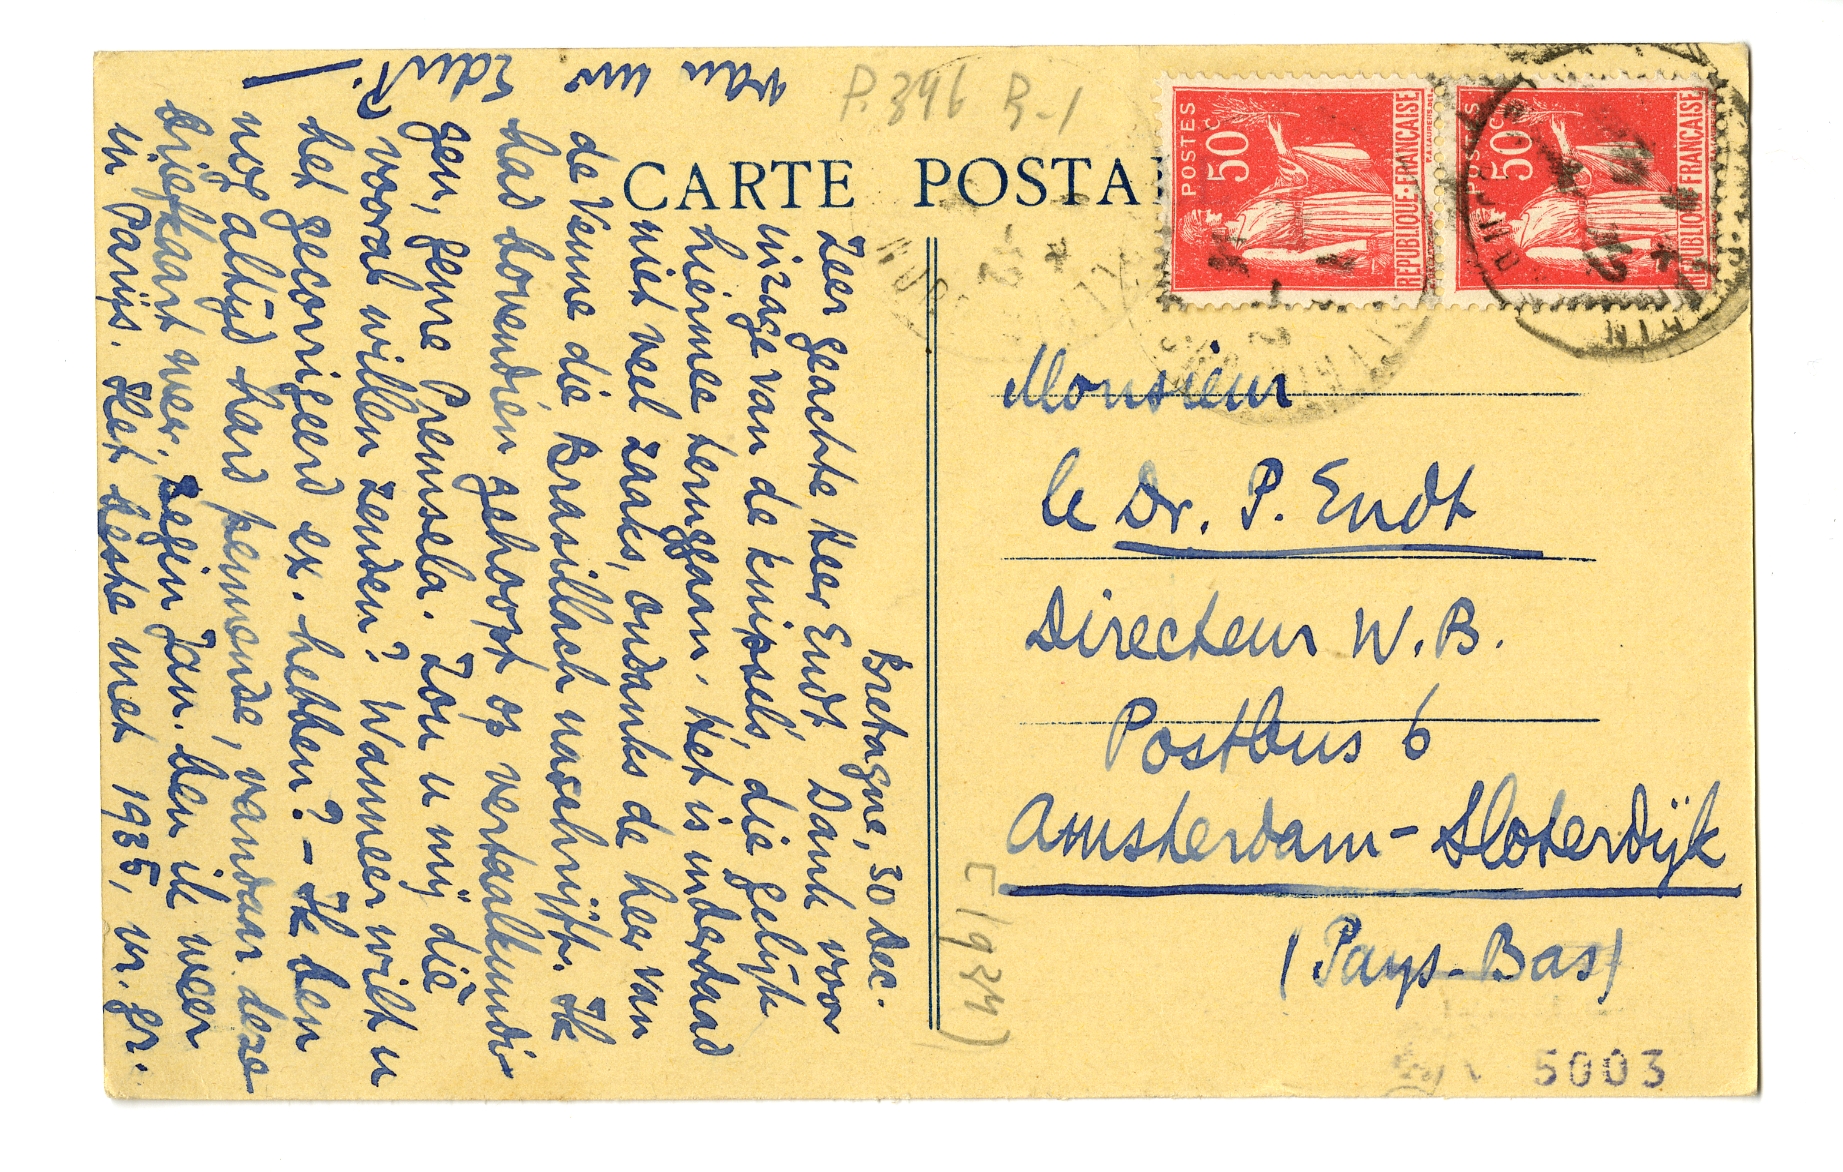 P. 396 B-1
CARTE POSTA
POSTES
50c
REPUBLIQUE·FRANÇAISE
POSTES
50c
REPUBLIQUE FRANÇAISE
Bretagne, 30 Dec.
Zeer geachte Heer Endt, Dank voor
inzage van de knipsels, die gelijk
hiermee teruggaan. Het is inderdaad
niet veel zaaks, ondanks de heer van
de Venne die Brasillach naschrijft. Ik
had bovendien gehoopt op vertaalkundi-
gen, genre Premsela. Zou u mij die
vooral willen zenden? Wanneer wilt u
het gecorrigeerd ex. hebben? – Ik ben
nog altijd hard pennende, vandaar deze
briefkaart weer, tegen Jan. ben ik weer
in Parijs. Het beste met 1935, m. gr.
van uw
EduP.
Monsieur
le Dr. P. Endt
Directeur W.B.
Postbus 6
Amsterdam-Sloterdijk
(Pays-Bas)
[1934]
5003